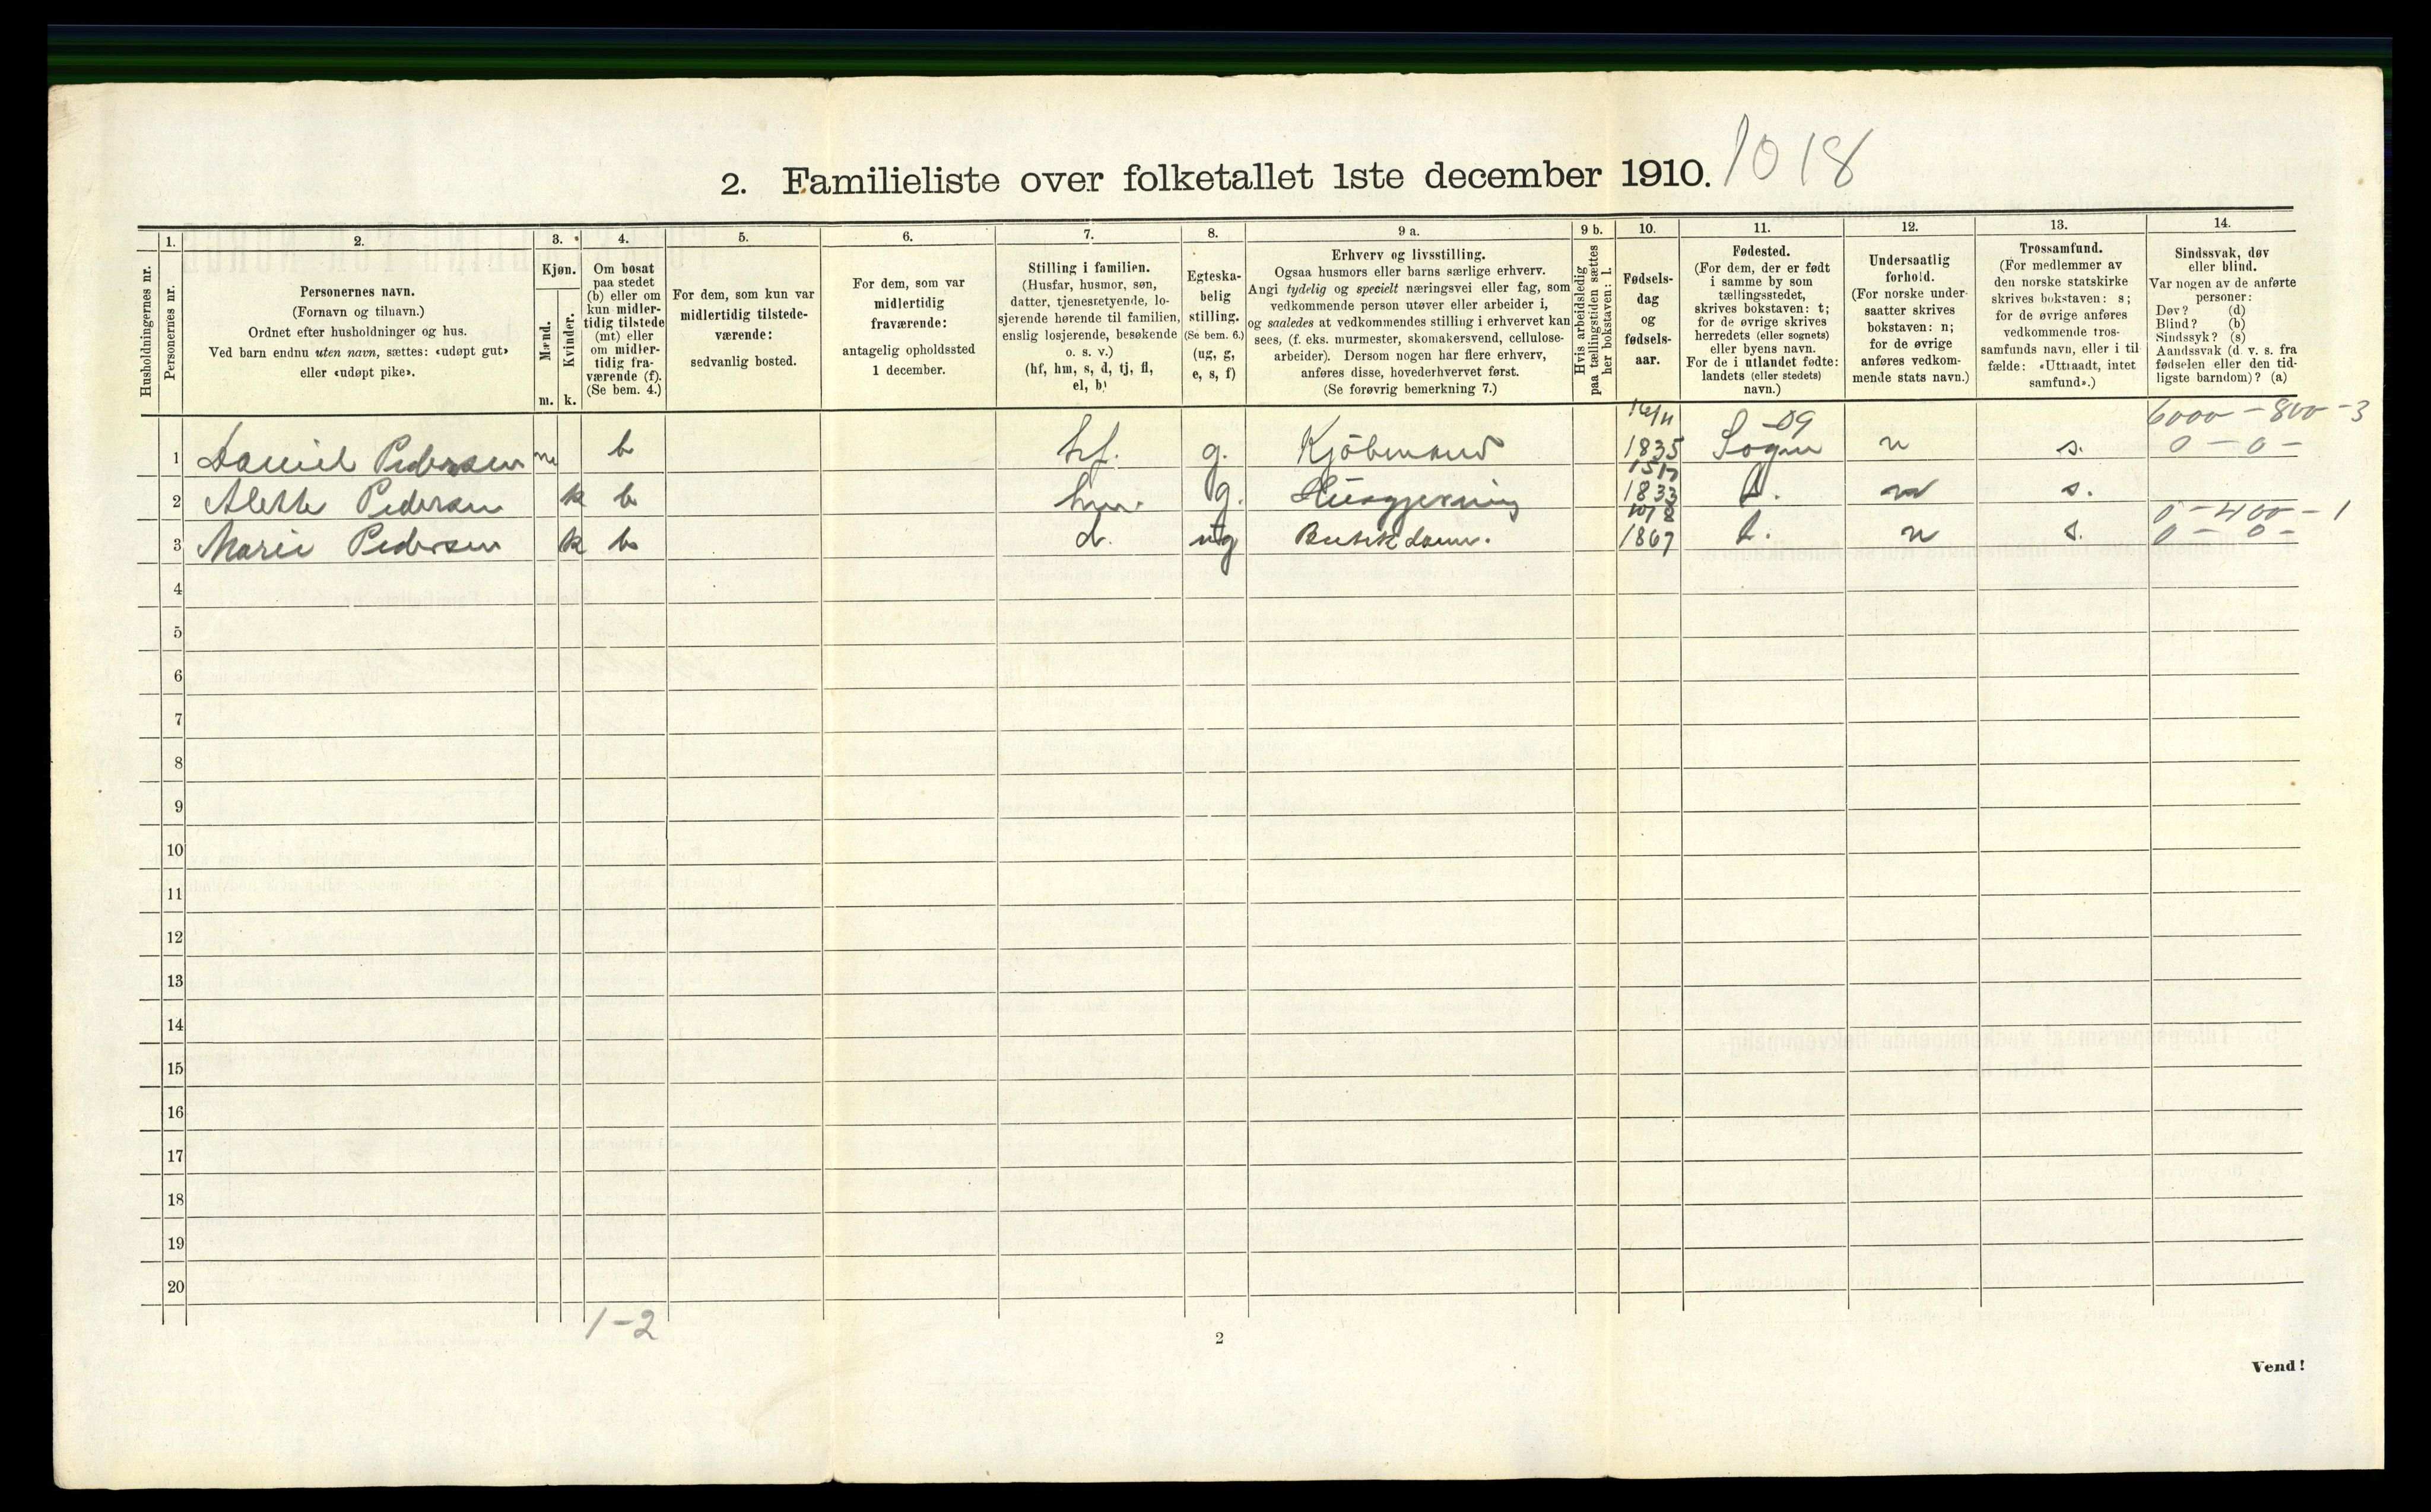 2. Familieliste over folketallet 1ste december 1910. 1018
Husholdningernes nr.
1.
Personernes nr.
2.
Personernes navn.
(Fornavn og tilnavn.)
Ordnet efter husholdninger og hus.
Ved barn endnu uten navn, sættes: «udøpt gut»
eller «udøpt pike».
3.
Kjøn.
Mænd.
Kvinder.
m. k.
4.
Om bosat
paa stedet
(b) eller om
kun midler-
tidig tilstede
(mt) eller
om midler-
tidig fra-
værende (f).
(Se bem. 4.)
5.
For dem, som kun var
midlertidig tilstede-
værende:
sedvanlig bosted.
6.
For dem, som var
midlertidig
fraværende:
antagelig opholdssted
1 december.
7.
Stilling i familien.
(Husfar, husmor, søn,
datter, tjenestetyende, lo-
sjerende hørende til familien,
enslig losjerende, besøkende
o. s. v.)
(hf, hm, s, d, tj, fl,
el, b)
8.
Egteska-
belig
stilling.
(Se bem. 6.)
(ug, g,
e, s, f)
9 a.
Erhverv og livsstilling.
Ogsaa husmors eller barns særlige erhverv.
Angi tydelig og specielt næringsvei eller fag, som
vedkommende person utøver eller arbeider i,
og saaledes at vedkommendes stilling i erhvervet kan
sees, (f. eks. murmester, skomakersvend, cellulose-
arbeider). Dersom nogen har flere erhverv,
anføres disse, hovederhvervet først.
(Se forøvrig bemerkning 7.)
9 b.
Hvis arbeidsledig
paa tællingstiden sættes
her bokstaven: l.
10.
Fødsels-
dag
og
fødsels-
aar.
11.
Fødested.
(For dem, der er født
i samme by som
tællingsstedet,
skrives bokstaven: t;
for de øvrige skrives
herredets (eller sognets)
eller byens navn.
For de i utlandet fødte:
landets (eller stedets)
navn.)
12.
Undersaatlig
forhold.
(For norske under-
saatter skrives
bokstaven: n;
for de øvrige
anføres vedkom-
mende stats navn.)
13.
Trossamfund.
(For medlemmer av
den norske statskirke
skrives bokstaven: s;
for de øvrige anføres
vedkommende tros-
samfunds navn, eller i til-
fælde: «Uttraadt, intet
samfund».)
14.
Sindssvak, døv
eller blind.
Var nogen av de anførte
personer:
Døv? (d)
Blind? (b)
Sindssyk? (s)
Aandssvak (d. v. s. fra
fødselen eller den tid-
ligste barndom)? (a)
-09 6000 - 800 - 3
1 Daniel Pedersen m b hf. g. Kjöbmand 1835 Sogne n s. 0 - 0 -
2 Alette Pedersen k b hm. g. Husgjerning 1833 s.
0 - 400 - 1
3 Marie Pedersen k b d. ug Butikdame. 1867 n s. 0 - 0 -
4
5
6
7
8
9
10
11
12
13
14
15
16
17
18
19
20
1-2
2
Vend!